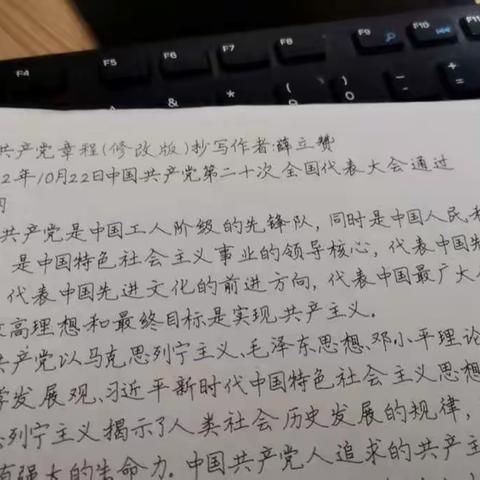 F4 F5 F6 F7 F8 F9 F10 F11
& * ( )
7 8 9 0
共产党章程(修改版)抄写作者:薛立赞
2年10月22日中国共产党第二十次全国代表大会通过
共产党是中国工人阶级的先锋队,同时是中国人民和
是中国特色社会主义事业的领导核心,代表中国先
代表中国先进文化的前进方向,代表中国最广大人
高理想和最终目标是实现共产主义.
共产党以马克思列宁主义、毛泽东思想、邓小平理论
学发展观、习近平新时代中国特色社会主义思想
列宁主义揭示了人类社会历史发展的规律,
强大的生命力.中国共产党人追求的共产主